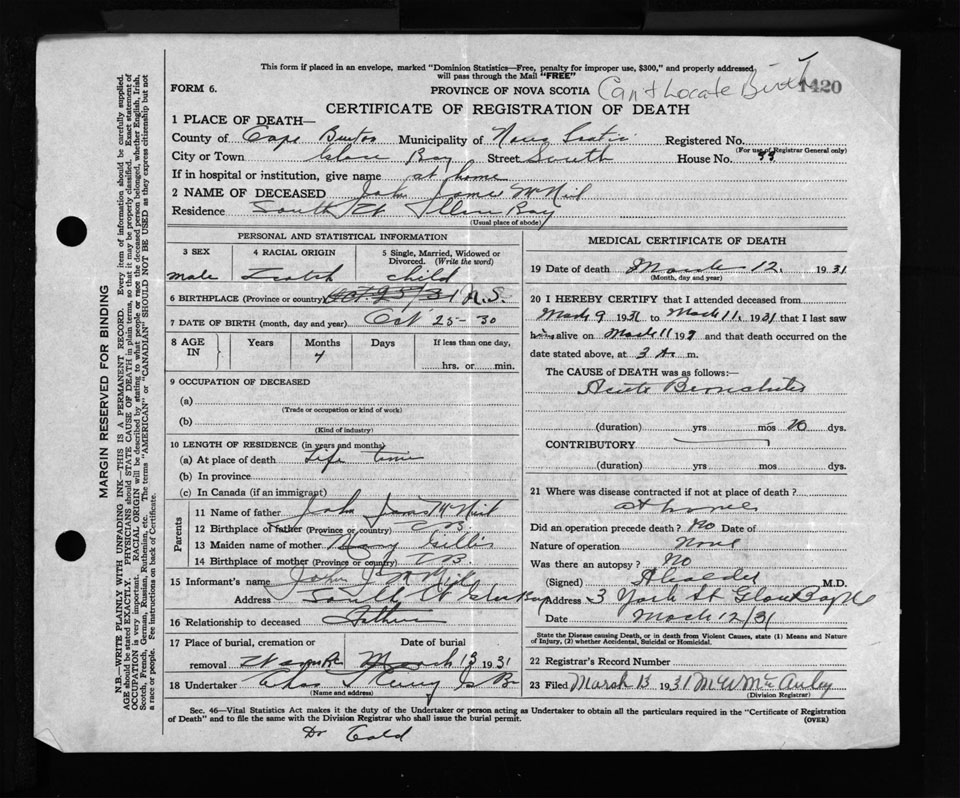 This form if placed in an envelope, marked "Dominion Statistics—Free, penalty for improper use, $300," and properly addressed
will pass through the Mail "FREE"
FORM 6. PROVINCE OF NOVA SCOTIA Can't Locate Birth 1420
CERTIFICATE OF REGISTRATION OF DEATH
1 PLACE OF DEATH—
County of Cape Breton Municipality of Nova Scotia Registered No.
(For use of Registrar General only)
City or Town Glace Bay Street South House No.
If in hospital or institution, give name at home
2 NAME OF DECEASED John James McNeil
Residence South St Glace Bay
(Usual place of abode)
PERSONAL AND STATISTICAL INFORMATION
3 SEX 4 RACIAL ORIGIN 5 Single, Married, Widowed or Divorced. (Write the word)
male Scotch child
6 BIRTHPLACE (Province or country) Oct. 25/31 N.S.
7 DATE OF BIRTH (month, day and year) Oct 25-30
8 AGE IN Years Months Days If less than one day,
4 hrs. or min.
9 OCCUPATION OF DECEASED
(a)
(Trade or occupation or kind of work)
(b)
(Kind of industry)
10 LENGTH OF RESIDENCE (in years and months)
(a) At place of death Life time
(b) In province
(c) In Canada (if an immigrant)
Parents
11 Name of father John James McNeil
12 Birthplace of father (Province or country) C B
13 Maiden name of mother Mary Gillis
14 Birthplace of mother (Province or country) C B.
15 Informant's name John J McNeil
Address South St Glace Bay
16 Relationship to deceased Father
17 Place of burial, cremation or Date of burial
removal March 13 1931
18 Undertaker Chas
(Name and address)
MEDICAL CERTIFICATE OF DEATH
19 Date of death March 12, 1931
(Month, day and year)
20 I HEREBY CERTIFY that I attended deceased from
March 9 1931 to March 11, 1931 that I last saw
him alive on March 11 19 and that death occurred on the
date stated above, at 3 A m.
The CAUSE OF DEATH was as follows:—
Acute Bronchitis
(duration) yrs mos dys.
CONTRIBUTORY
(duration) yrs mos dys.
21 Where was disease contracted if not at place of death?
at home
Did an operation precede death? No Date of
Nature of operation None
Was there an autopsy? No
(Signed) M.D.
Address 3 York St Glace Bay
Date March 12/31
State the Disease causing Death, or in death from Violent Causes, state (1) Means and Nature
of Injury, (2) whether Accidental, Suicidal or Homicidal.
22 Registrar's Record Number
23 Filed March 13 1931 M W McAuley
(Division Registrar)
Sec. 46—Vital Statistics Act makes it the duty of the Undertaker or person acting as Undertaker to obtain all the particulars required in the "Certificate of Registration
of Death" and to file the same with the Division Registrar who shall issue the burial permit. (OVER)
Dr
MARGIN RESERVED FOR BINDING
N.B.—WRITE PLAINLY WITH UNFADING INK—THIS IS A PERMANENT RECORD. Every item of information should be carefully supplied.
AGE should be stated EXACTLY. PHYSICIANS should STATE CAUSE OF DEATH in plain terms, so that it may be properly classified. Exact statement of
OCCUPATION is very important. RACIAL ORIGIN will be described by stating to what people or race the deceased person belonged, whether English, Irish,
Scotch, French, German, Russian, Ruthenian, etc. The terms "AMERICAN" or "CANADIAN" SHOULD NOT BE USED as they express citizenship but not
a race or people. See instructions on back of Certificate.